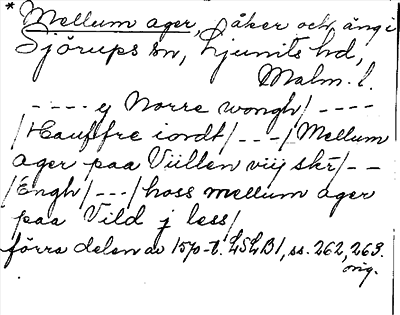 * Mellum ager, åker och äng i
Sjörups sn, Ljunits hd,
Malm. l.
---- ej Norre wongh/ ----
/Hauffre iordt/ ---/Mellum
ager paa Viillen viij skr/ --
/Engh/ ---/hoss mellum ager
paa Vild j less/
förra delen av 1570-t. LSLB1, ss. 262, 263.
orig.